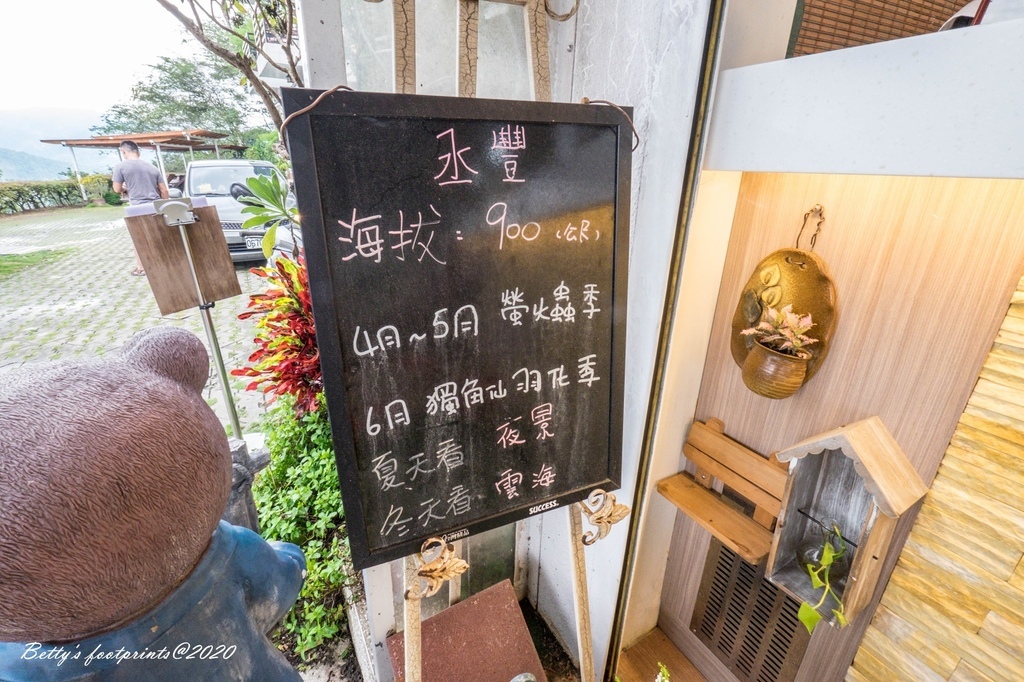 丞豐
海拔：900（公尺）
4月~5月 螢火蟲季
6月 獨角仙羽化季
夏天看 夜景
冬天看 雲海
SUCCESS.
Betty's footprints@2020